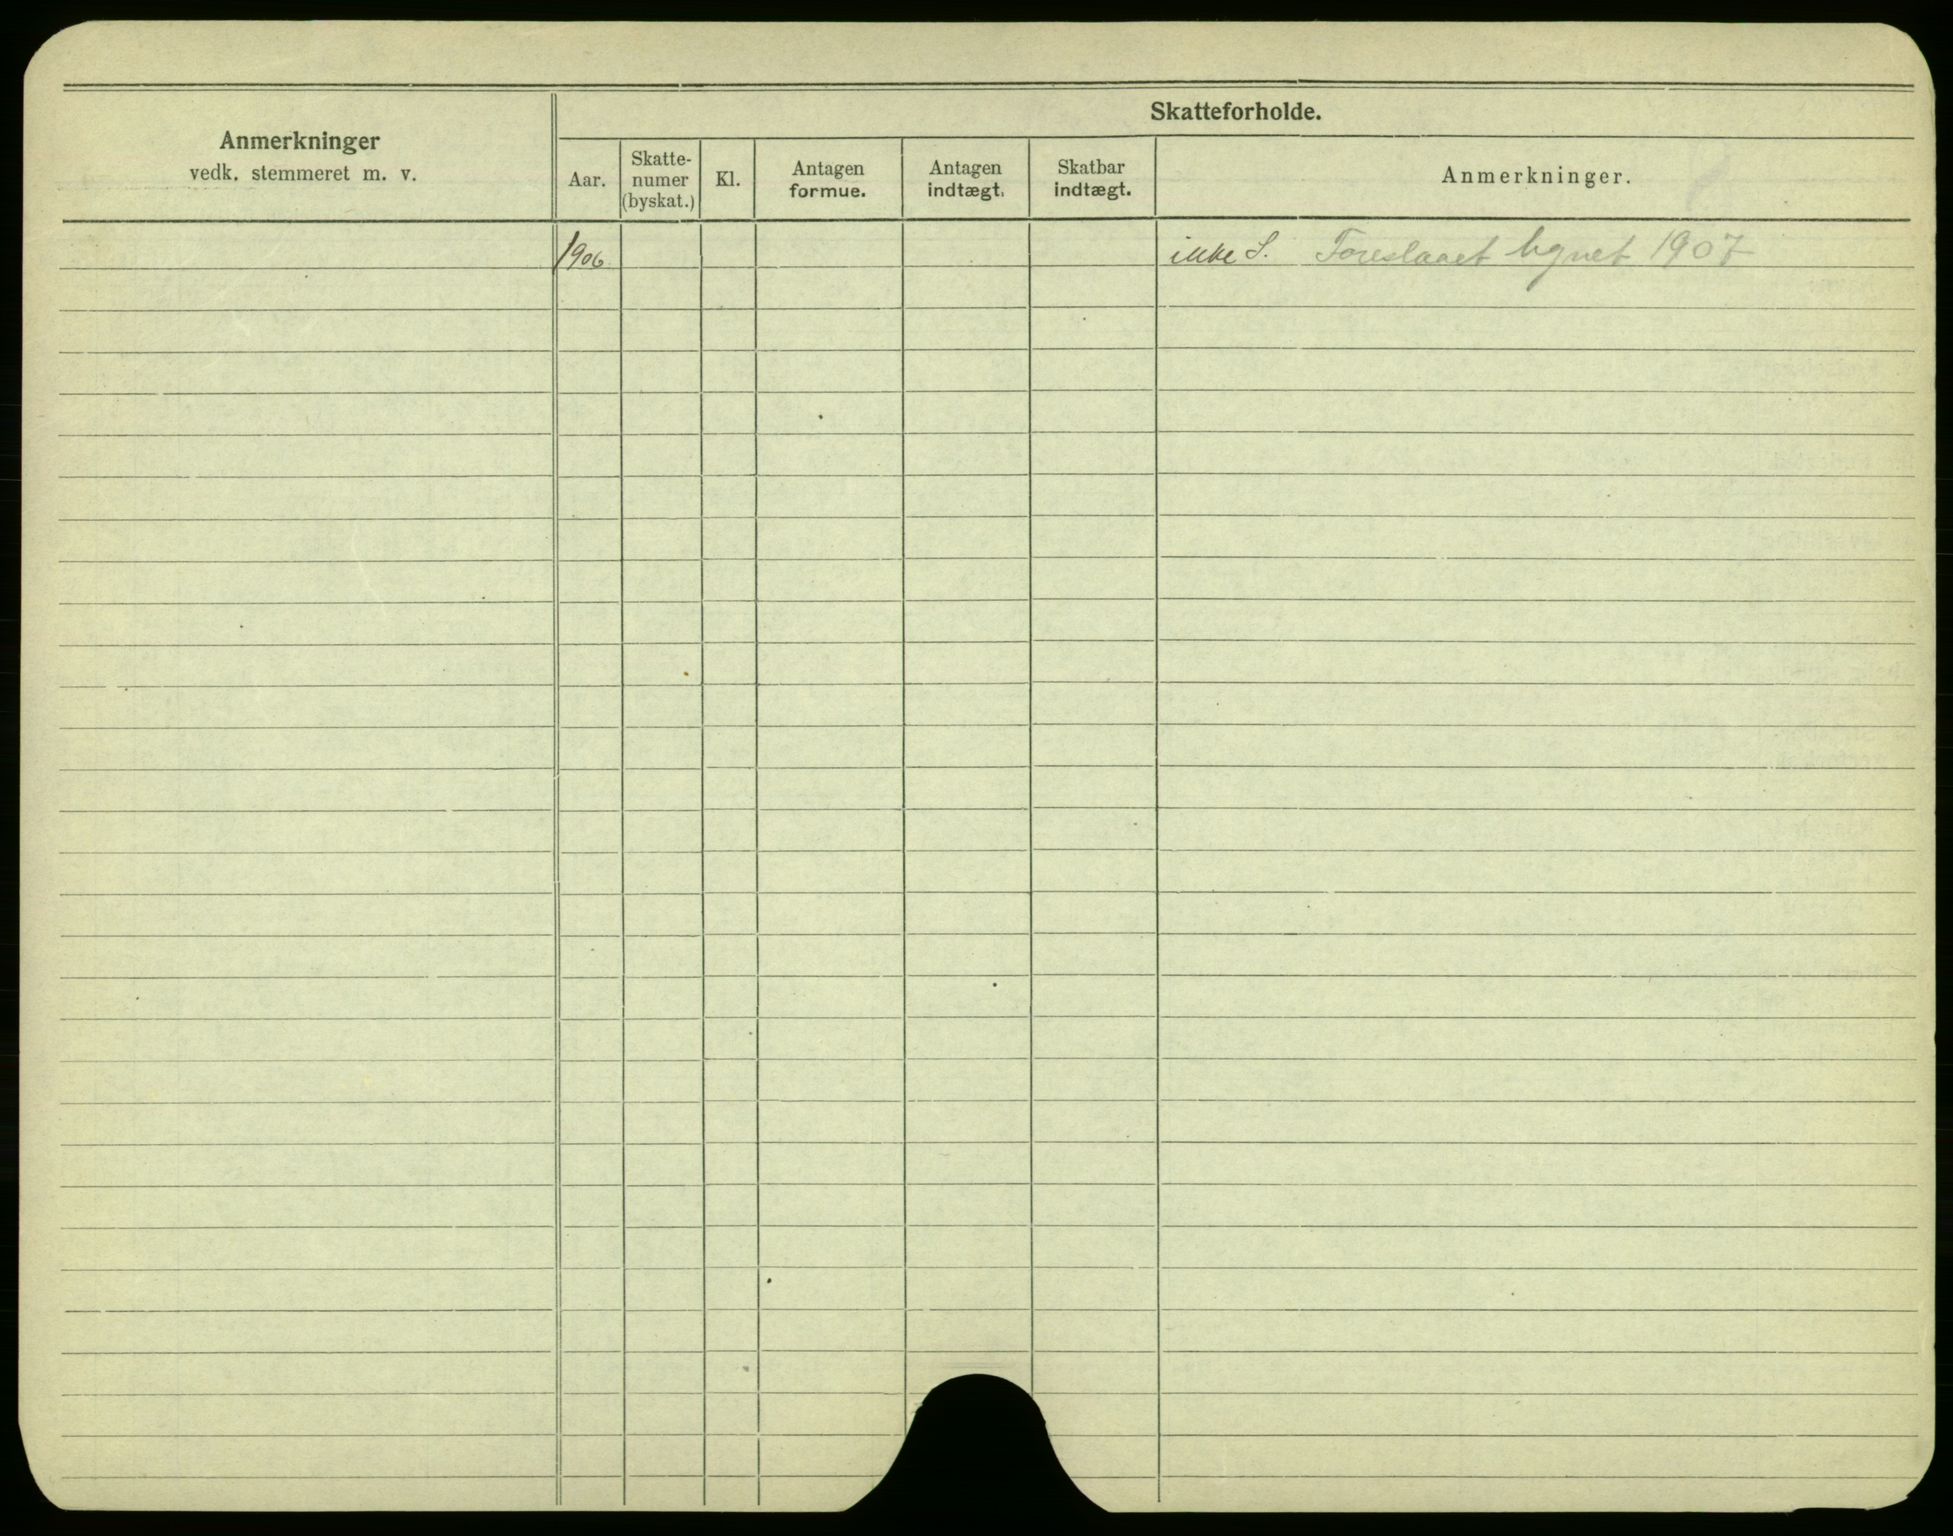 Skatteforholde.
Anmerkninger
vedk. stemmeret m. v.
Aar.
Skatte-
numer
(byskat.)
Kl.
Antagen
formue.
Antagen
indtægt.
Skatbar
indtægt.
Anmerkninger.
1906 ikke S. Foreslaaet lignet 1907